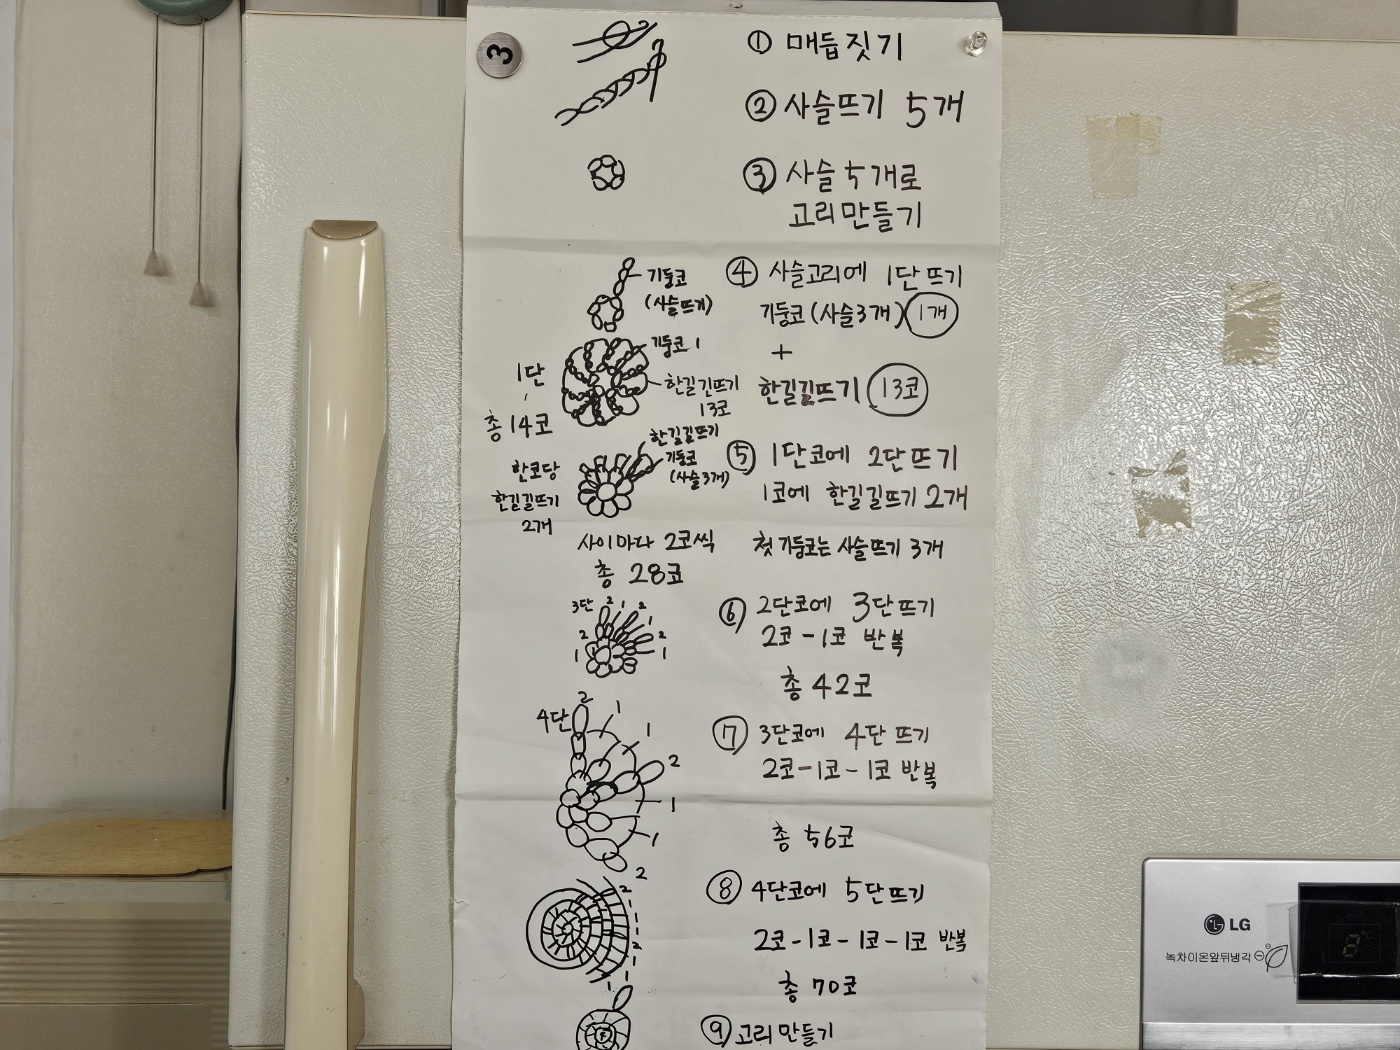 3
① 매듭짓기
② 사슬뜨기 5개
③ 사슬 5개로
고리만들기
기둥코
(사슬뜨기)
④ 사슬고리에 1단 뜨기
기둥코 (사슬3개) 1개
+
한길긴뜨기 13코
기둥코 1
한길긴뜨기
13코
1단
총 14코
한길긴뜨기
기둥코
(사슬3개)
한코당
한길긴뜨기
2개
사이마다 2코씩
총 28코
⑤ 1단코에 2단 뜨기
1코에 한길긴뜨기 2개
첫 기둥코는 사슬뜨기 3개
3단 2 1 2
2 2
1 1
⑥ 2단코에 3단뜨기
2코-1코 반복
총 42코
2
4단 1
1
2
1
1
2
⑦ 3단코에 4단 뜨기
2코-1코-1코 반복
총 56코
2
2
1
1
⑧ 4단코에 5단뜨기
2코-1코-1코-1코 반복
총 70코
⑨ 고리만들기
LG
녹차이온앞뒤냉각